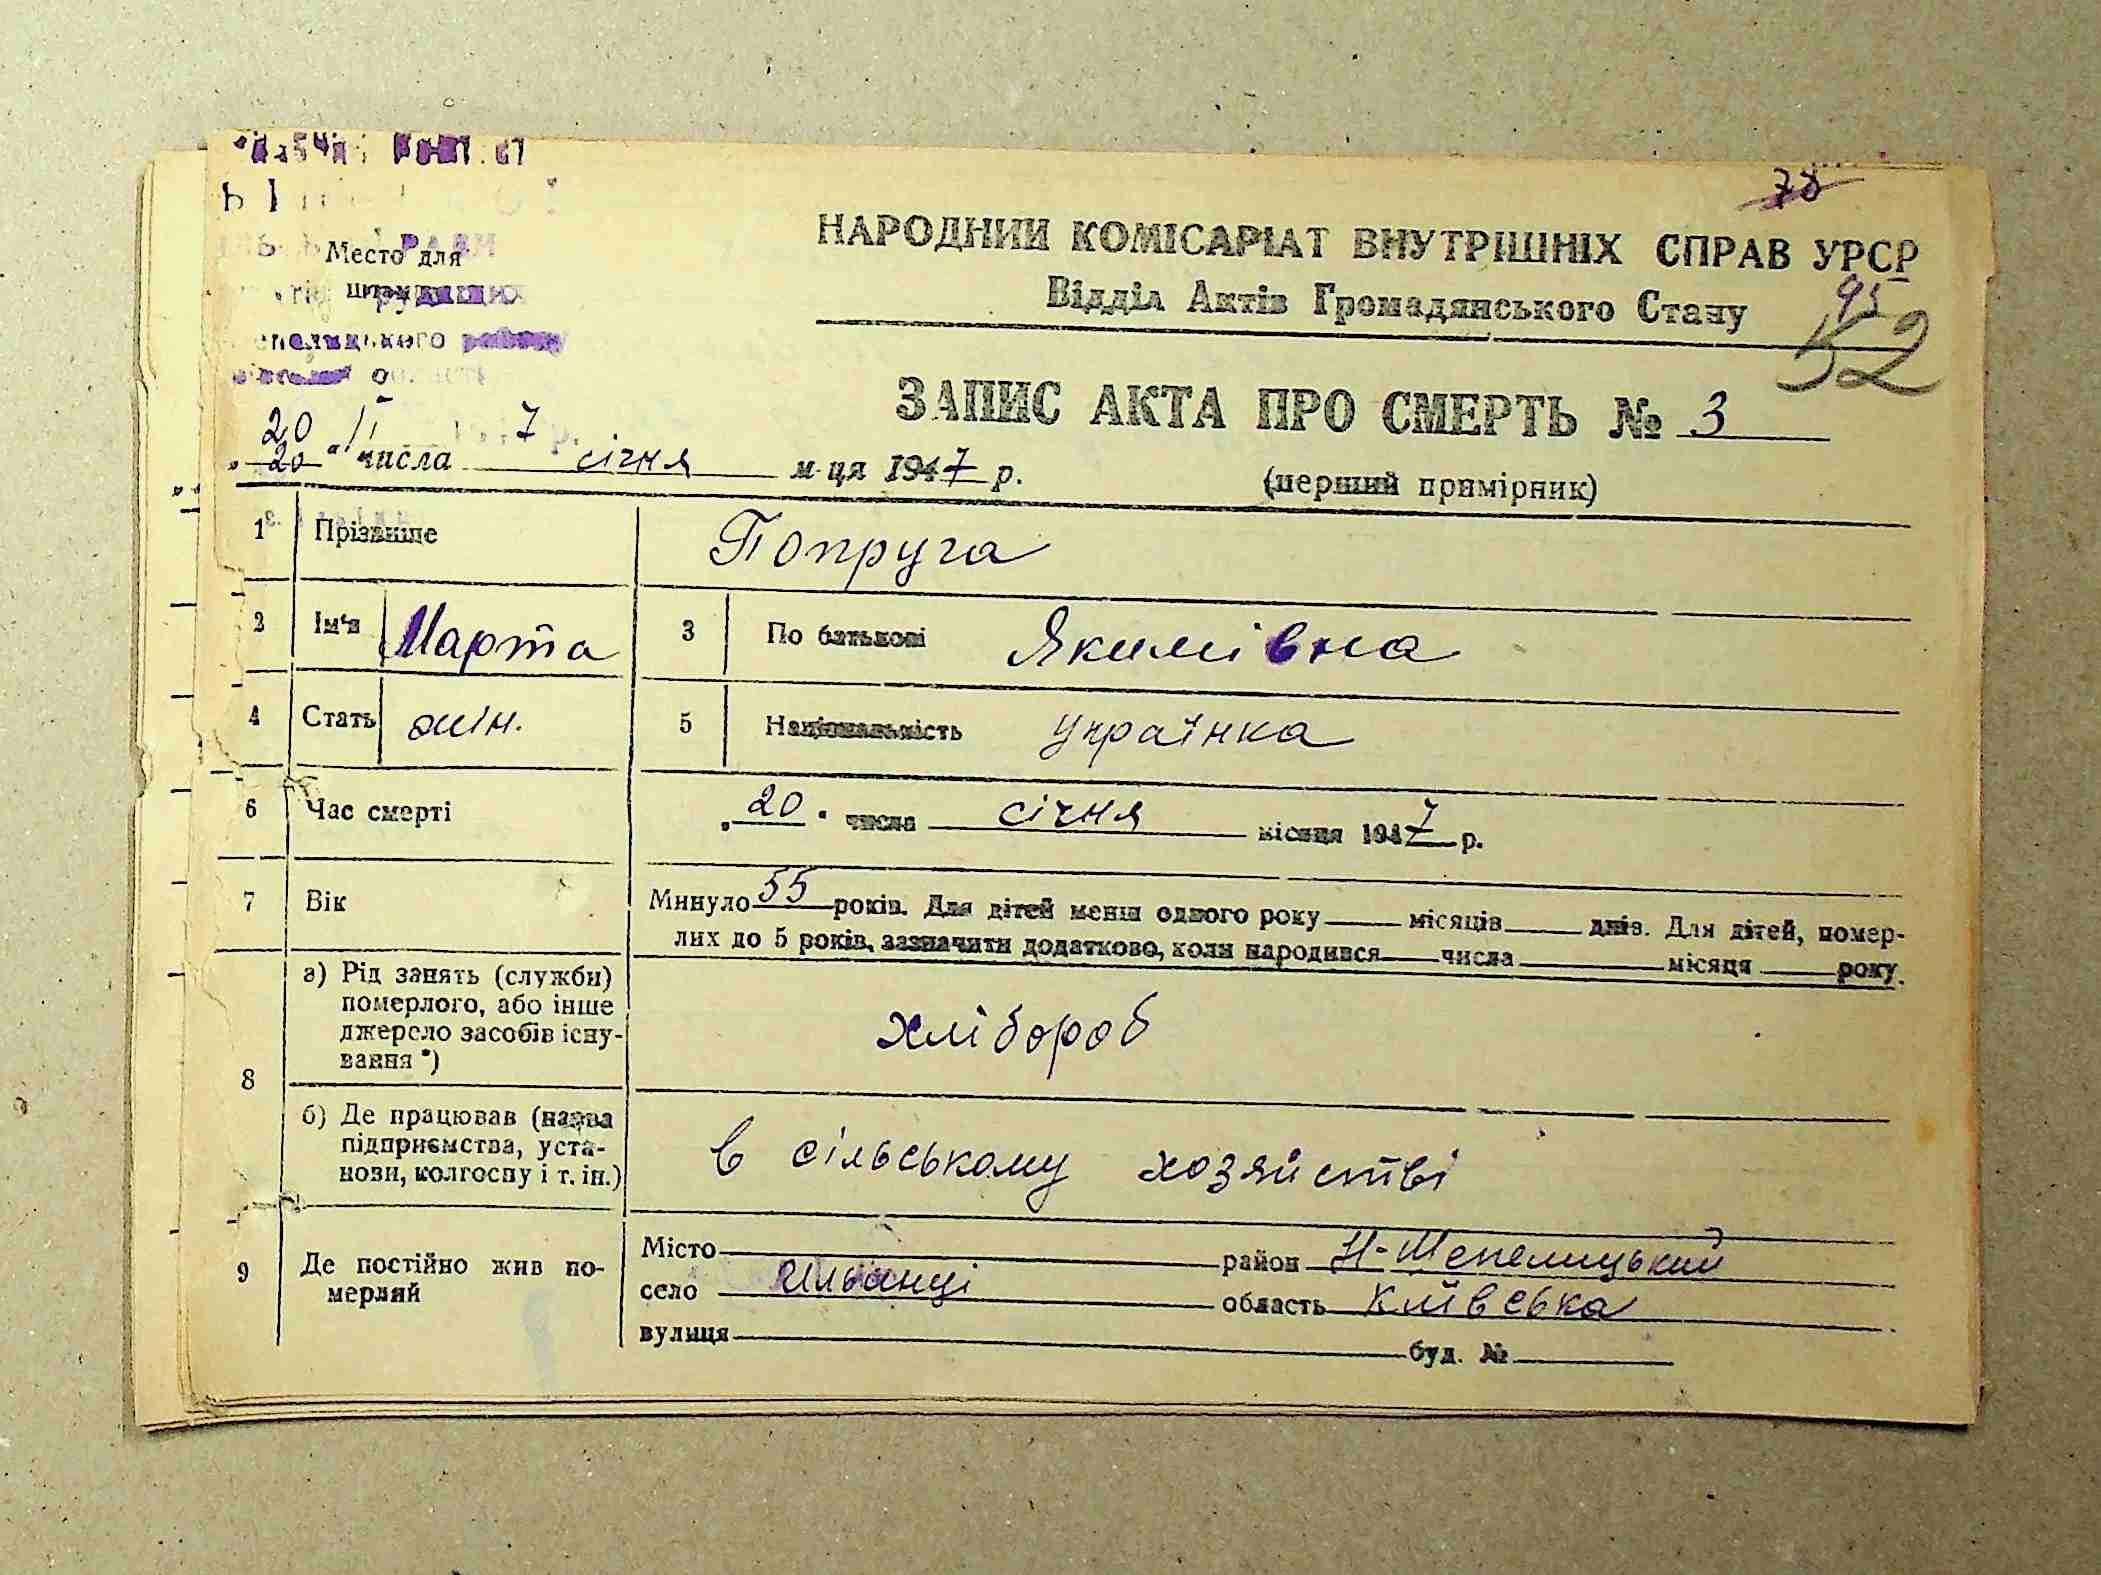 78
Место для
штампа
НАРОДНИЙ КОМІСАРІАТ ВНУТРІШНІХ СПРАВ УРСР
Відділ Актів Громадянського Стану
95
52
ЗАПИС АКТА ПРО СМЕРТЬ № 3
20 7
„20“ числа січня м-ця 1947 р.
(перший примірник)
1 Прізвище Попруга
2 Ім'я Марта 3 По батькові Якимівна
4 Стать жін. 5 Національність українка
6 Час смерті „20“ числа січня місяця 1947 р.
7 Вік Минуло 55 років. Для дітей менш одного року місяців днів. Для дітей, помер-
лих до 5 років, зазначити додатково, коли народився числа місяця року.
8 а) Рід занять (служби)
померлого, або інше
джерело засобів існу-
вання *)
хлібороб
б) Де працював (назва
підприємства, уста-
нови, колгоспу і т. ін.)
в сільському хозяйстві
9 Де постійно жив по-
мерлий
Місто район Н-Шепелицький
село Ильинці область Київська
вулиця буд. №